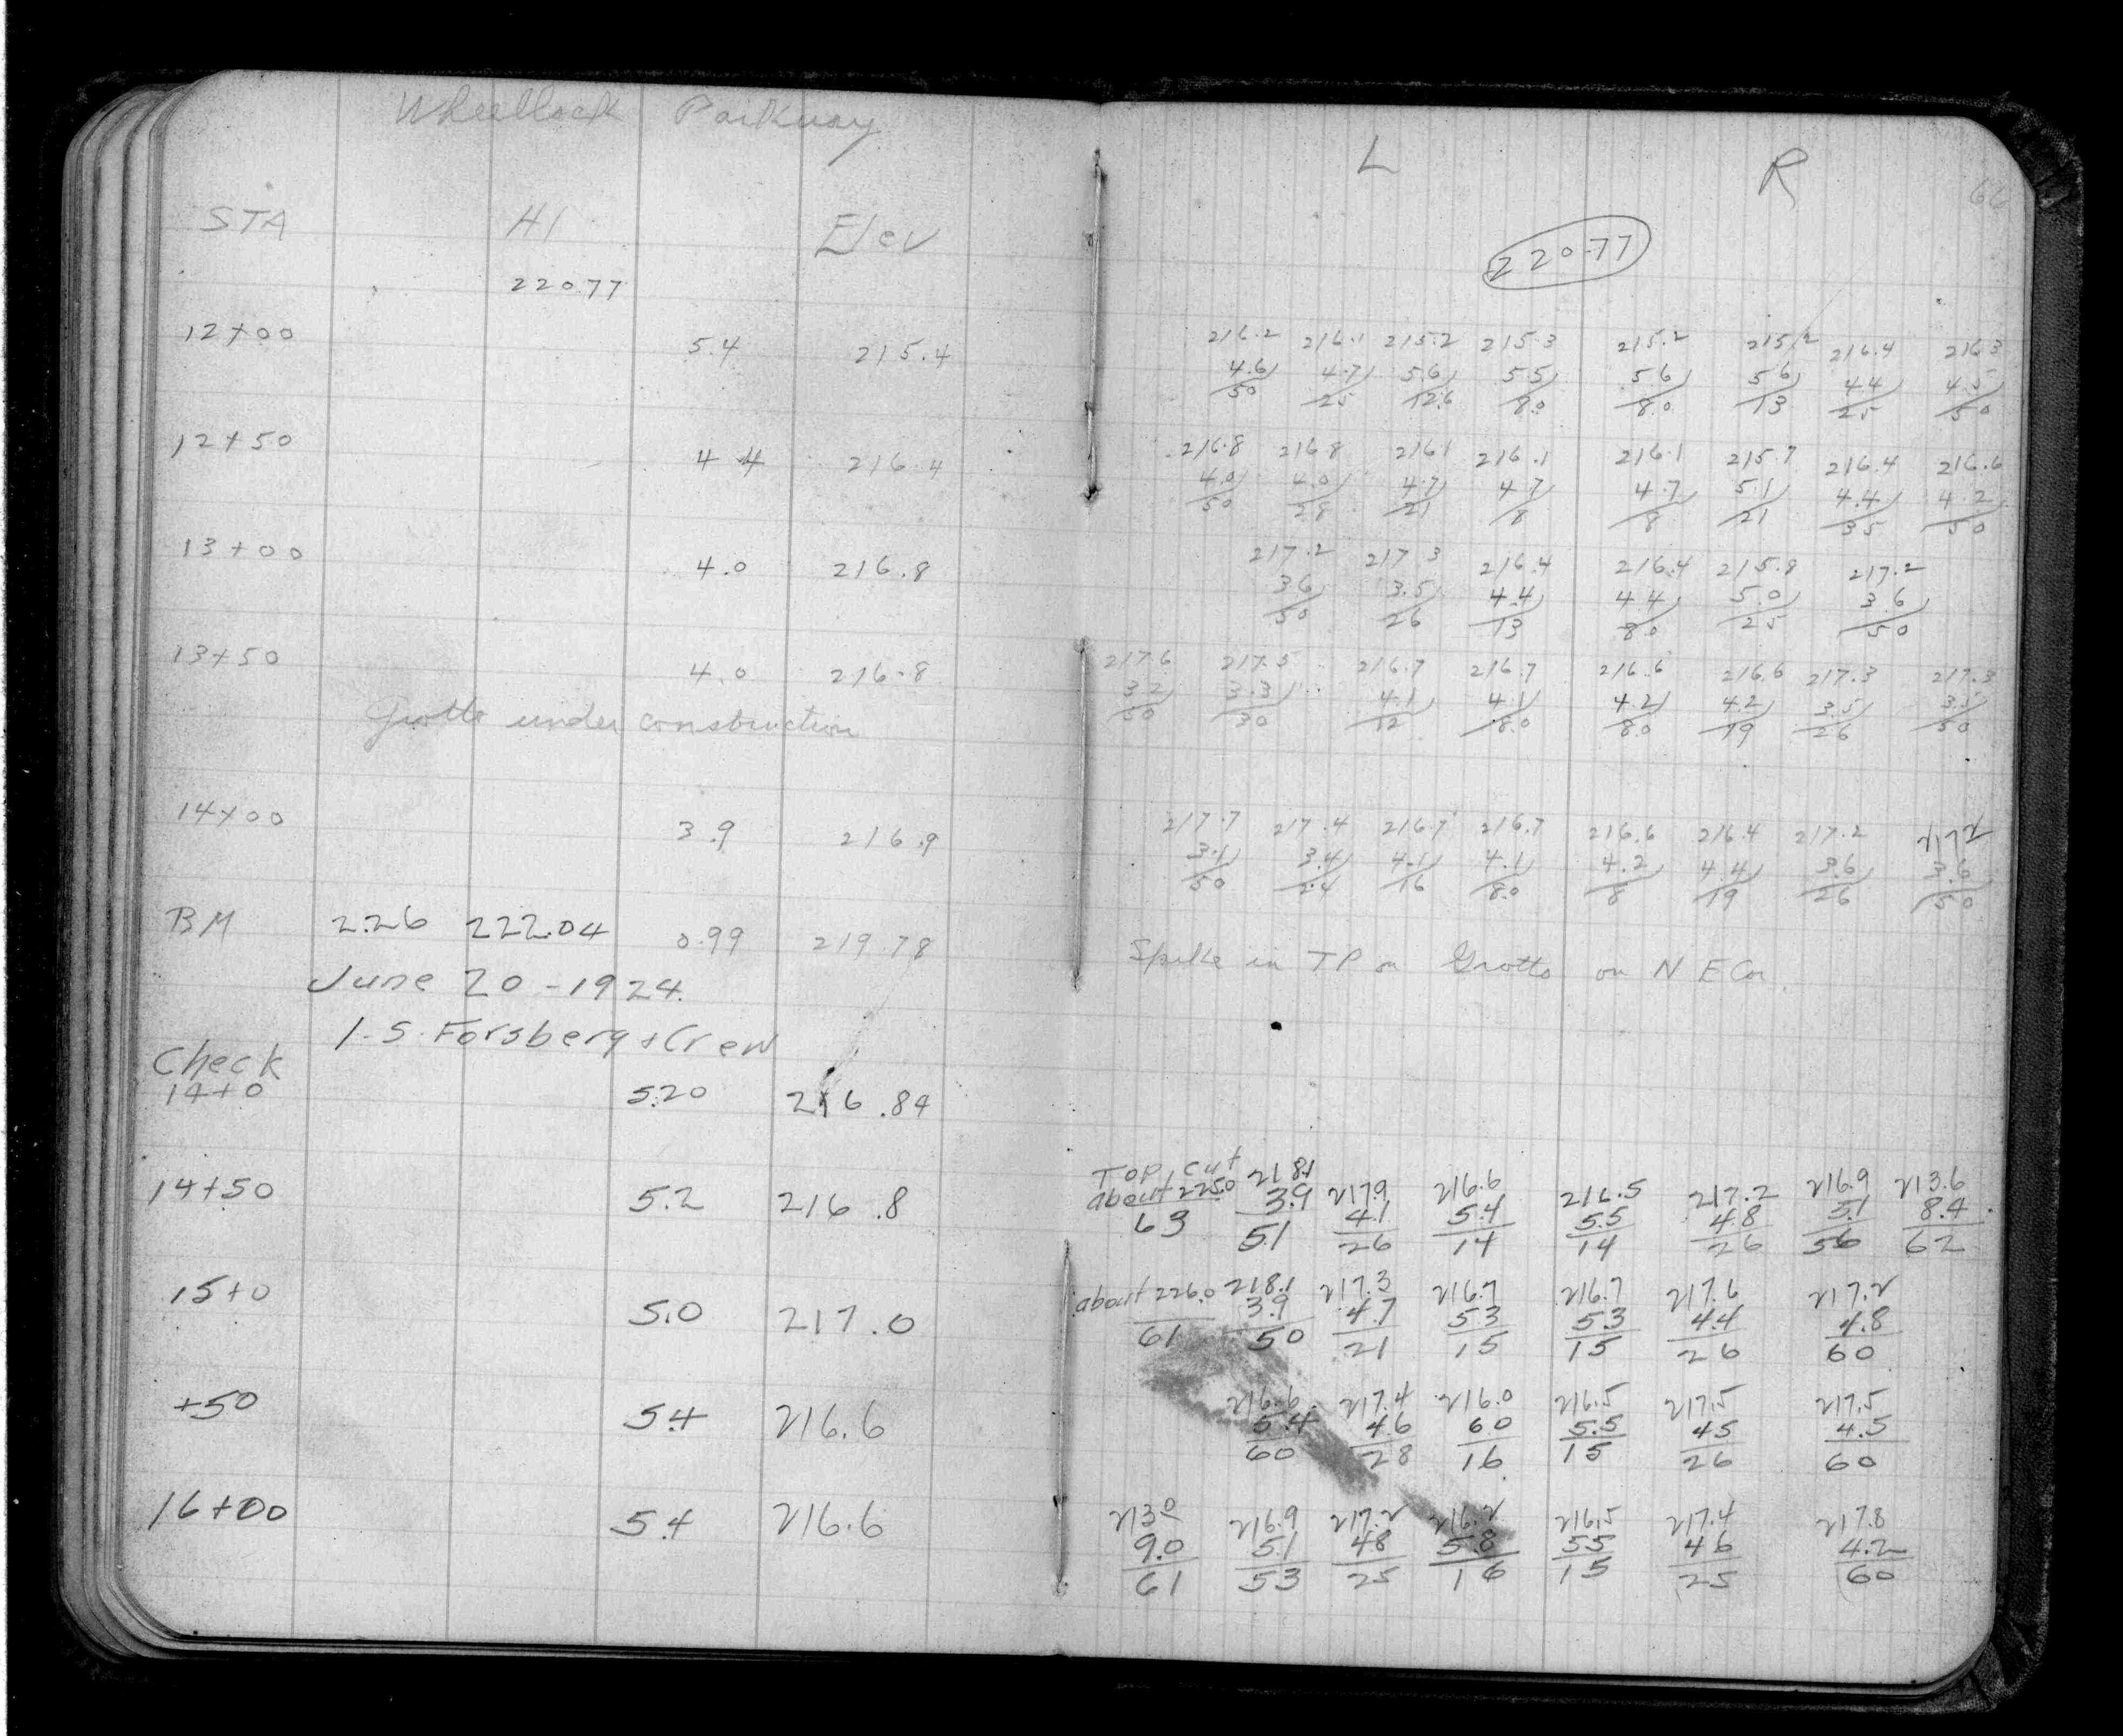 Wheellock Parkway
STA HI Elev
220.77
12+00 5.4 215.4
12+50 4.4 216.4
13+00 4.0 216.8
13+50 4.0 216.8
Grotto under construction
14+00 3.9 216.9
BM 2.26 222.04 0.99 219.78
June 20-1924.
I.S. Forsberg + Crew
Check
14+0 5.20 216.84
14+50 5.2 216.8
15+0 5.0 217.0
+50 5.4 216.6
16+00 5.4 216.6
L R 66
220.77
216.2 216.1 215.2 215.3 215.2 215.2 216.4 216.3
4.6 4.7 5.6 5.5 5.6 5.6 4.4 4.5
50 25 12.6 8.0 8.0 13 25 50
216.8 216.8 216.1 216.1 216.1 215.7 216.4 216.6
4.0 4.0 4.7 4.7 4.7 5.1 4.4 4.2
50 28 21 8 8 21 35 50
217.2 217.3 216.4 216.4 215.8 217.2
3.6 3.5 4.4 4.4 5.0 3.6
50 26 13 8.0 25 50
217.6 217.5 216.7 216.7 216.6 216.6 217.3 217.3
3.2 3.3 4.1 4.1 4.2 4.2 3.5 3.5
50 30 12 8.0 8.0 19 26 50
217.7 217.4 216.7 216.7 216.6 216.4 217.2 217.2
3.1 3.4 4.1 4.1 4.2 4.4 3.6 3.6
50 24 16 8.0 8 19 26 50
Spike in TP on Grotto on N E Cor.
Top cut 218.1
about 225.0 3.9 217.9 216.6 216.5 217.2 216.9 213.6
63 51 4.1 5.4 5.5 4.8 5.1 8.4
26 14 14 26 56 62
about 226.0 218.1 217.3 216.7 216.7 217.6 217.2
3.9 4.7 5.3 5.3 4.4 4.8
61 50 21 15 15 26 60
216.6 217.4 216.0 216.5 217.5 217.5
5.4 4.6 6.0 5.5 4.5 4.5
60 28 16 15 26 60
213.0 216.9 217.2 216.2 216.5 217.4 217.8
9.0 5.1 4.8 5.8 5.5 4.6 4.2
61 53 25 16 15 25 60